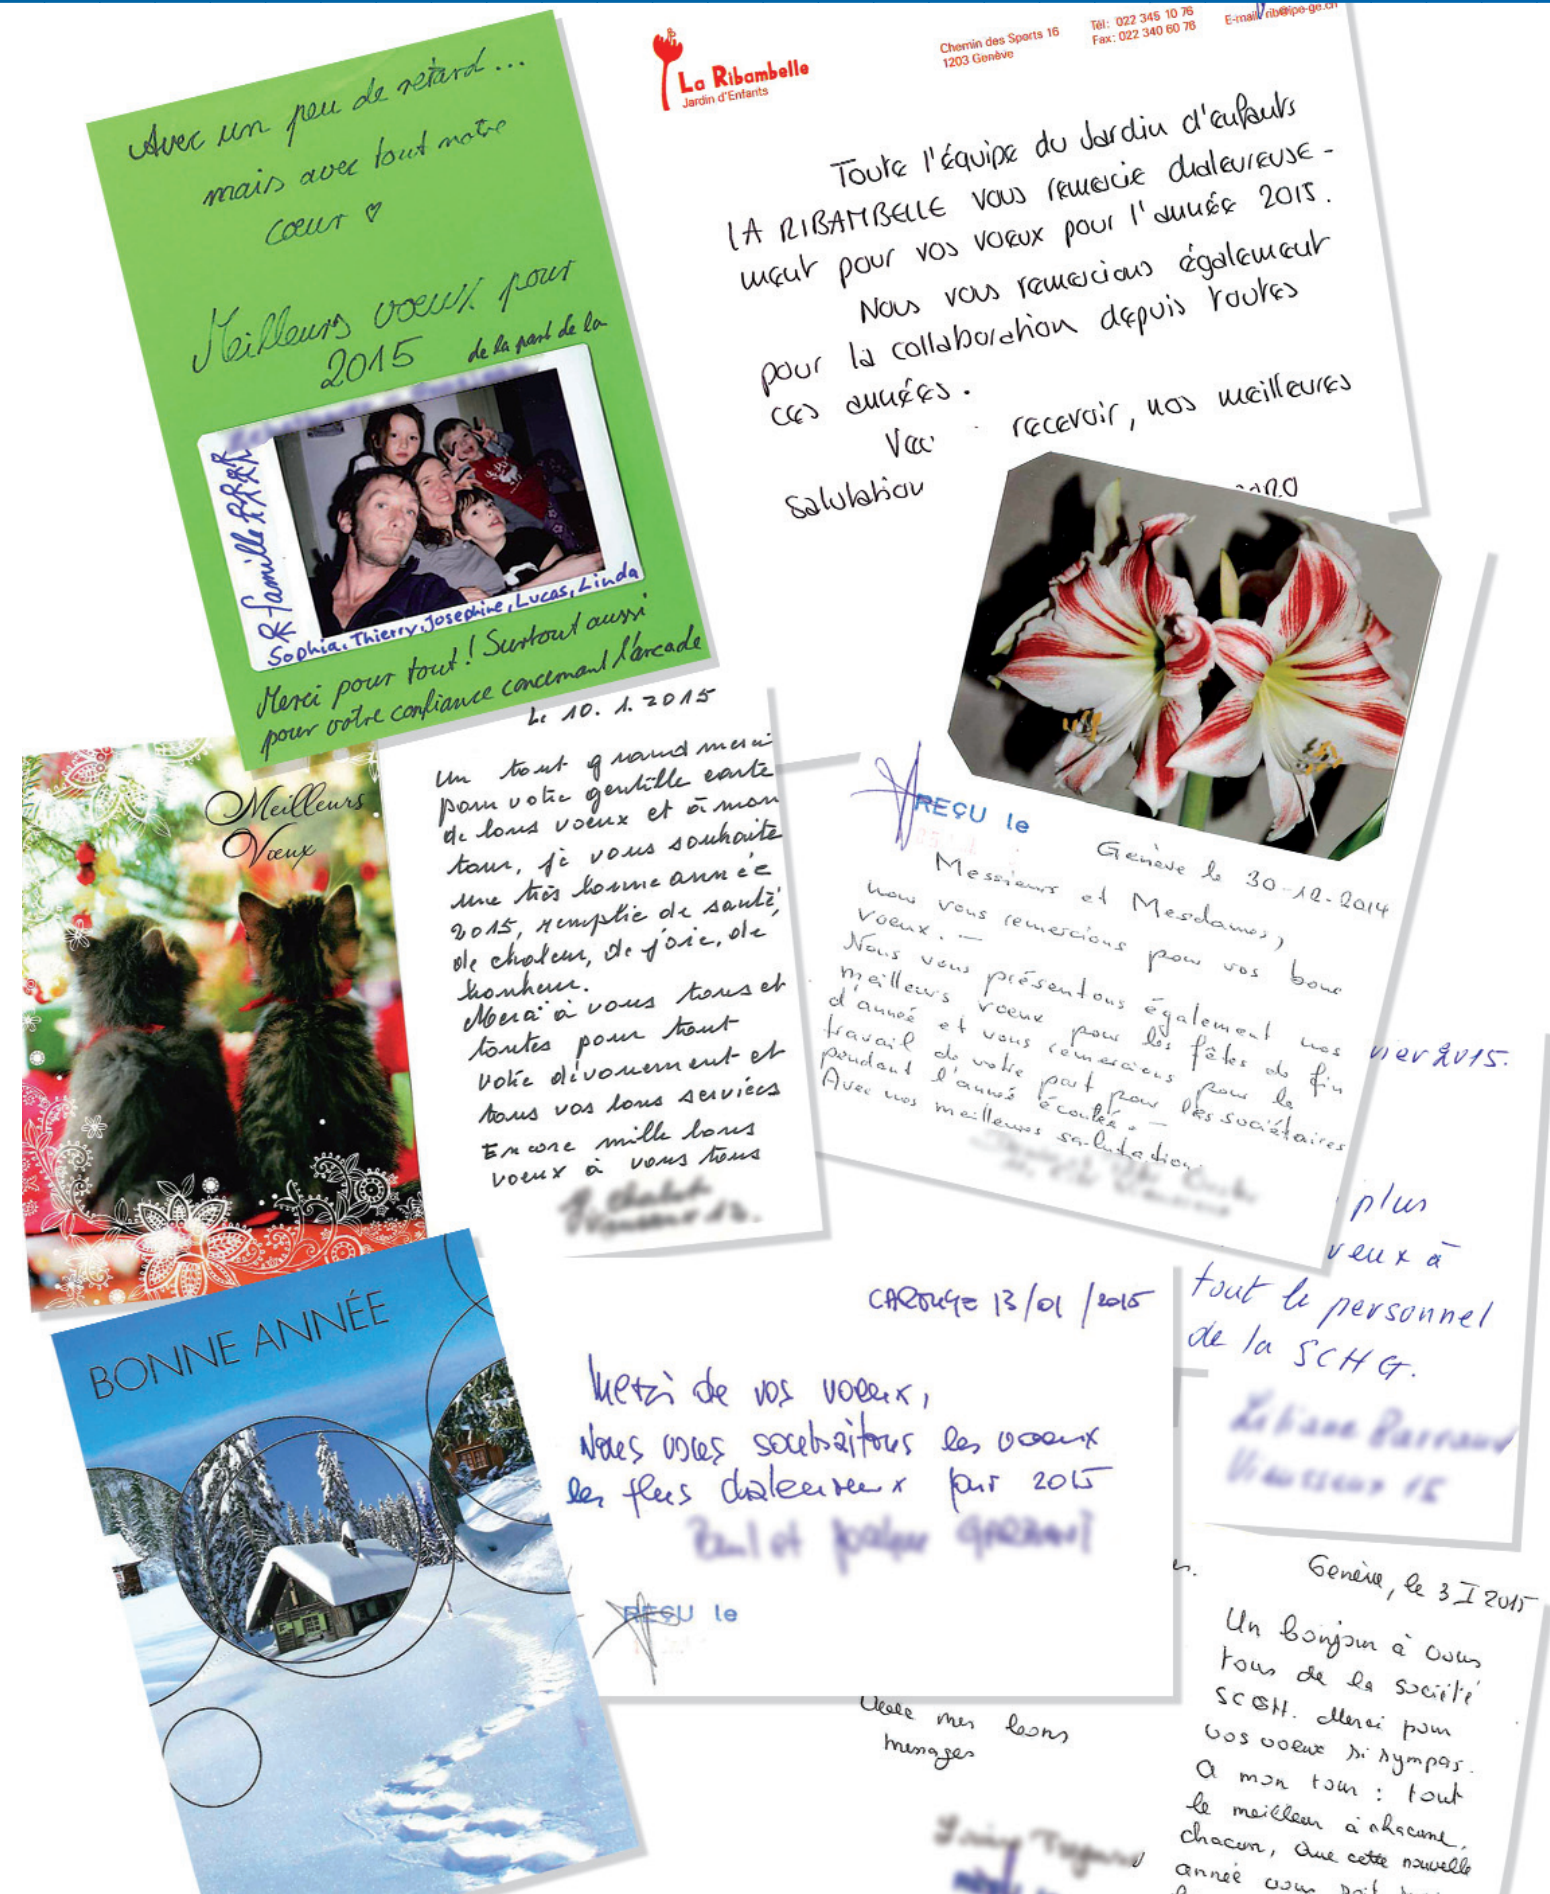 Avec un peu de retard...
mais avec tout notre
cœur ♡
Meilleurs vœux pour
2015 de la part de la
famille RRRR
Sophia, Thierry, Josephine, Lucas, Linda
Merci pour tout! Surtout aussi
pour votre confiance concernant l'arcade
La Ribambelle
Jardin d'Enfants
Chemin des Sports 16
1203 Genève
Tél: 022 345 10 76
Fax: 022 340 60 76
E-mail: rib@ipe-ge.ch
Toute l'équipe du Jardin d'enfants
LA RIBAMBELLE vous remercie chaleureuse-
ment pour vos voeux pour l'année 2015.
Nous vous remercions également
pour la collaboration depuis toutes
ces années.
recevoir, nos meilleures
salutation
Meilleurs
Vœux
Le 10.1.2015
Un tout grand merci
pour votre gentille carte
de bons voeux et à mon
tour, je vous souhaite
une très bonne année
2015, remplie de santé,
de chaleur, de joie, de
bonheur.
Merci à vous tous et
toutes pour tout
votre dévouement et
tous vos bons services
Encore mille bons
voeux à vous tous
REÇU le
Genève le 30-12-2014
Messieurs et Mesdames,
nous vous remercions pour vos bons
voeux. —
Nous vous présentons également nos
meilleurs voeux pour les fêtes de fin
d'année et vous remercions pour le
travail de votre part pour les sociétaires
pendant l'année écoulée. —
Avec nos meilleures salutations
vier 2015.
plus
veux à
tout le personnel
de la SCHG.
BONNE ANNÉE
CAROUGE 13/01/2015
Merci de vos voeux,
Nous vous souhaitons les voeux
les plus chaleureux pour 2015
REÇU le
mes bons
messages
Genève, le 3 I 2015
Un bonjour à vous
tous de la société
SCGH. Merci pour
vos voeux si sympas.
A mon tour : tout
le meilleur à chacune,
chacun, que cette nouvelle
année vous soit